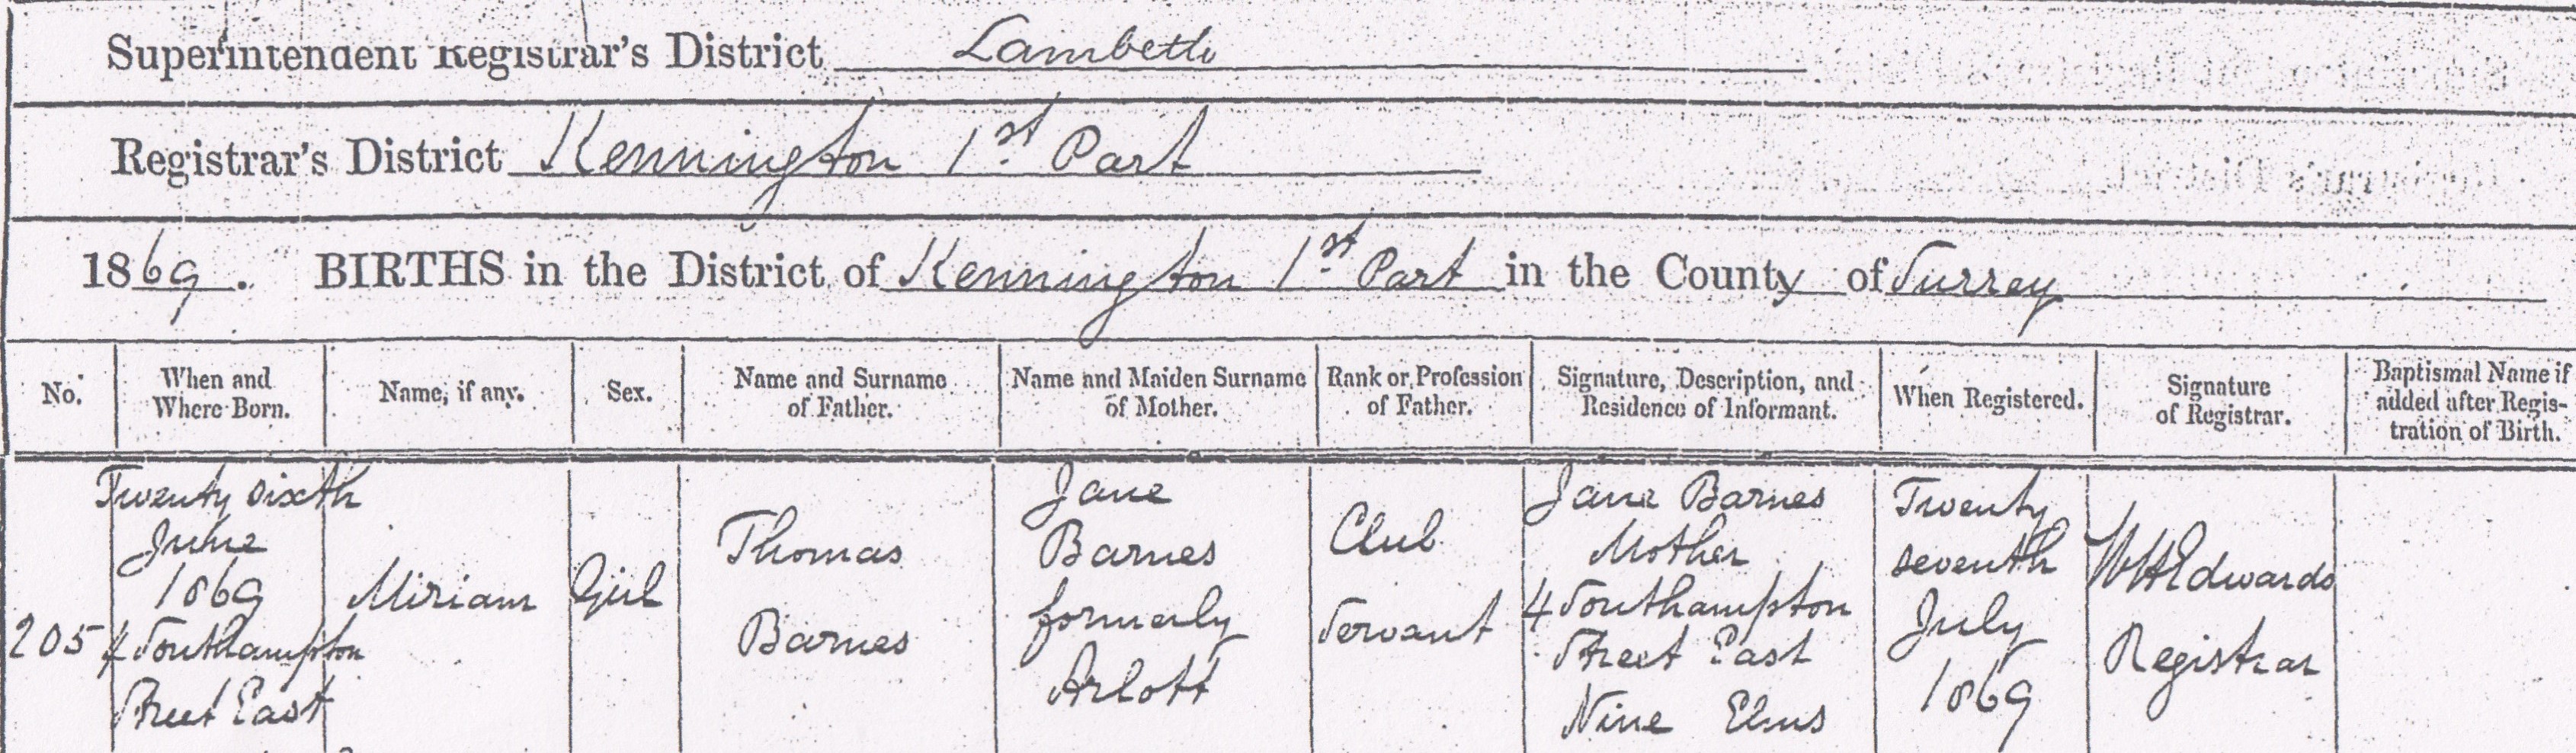 Superintendent Registrar's District Lambeth
Registrar's District Kennington 1st Part
1869. BIRTHS in the District of Kennington 1st Part in the County of Surrey
No.
When and
Where Born.
Name, if any.
Sex.
Name and Surname
of Father.
Name and Maiden Surname
of Mother.
Rank or Profession
of Father.
Signature, Description, and
Residence of Informant.
When Registered.
Signature
of Registrar.
Baptismal Name if
added after Regis-
tration of Birth.
205
Twenty sixth
June
1869
4 Southampton
Street East
Miriam
Girl
Thomas
Barnes
Jane
Barnes
formerly
Arlott
Club
Servant
Jane Barnes
Mother
4 Southampton
Street East
Nine Elms
Twenty
seventh
July
1869
WH Edwards
Registrar